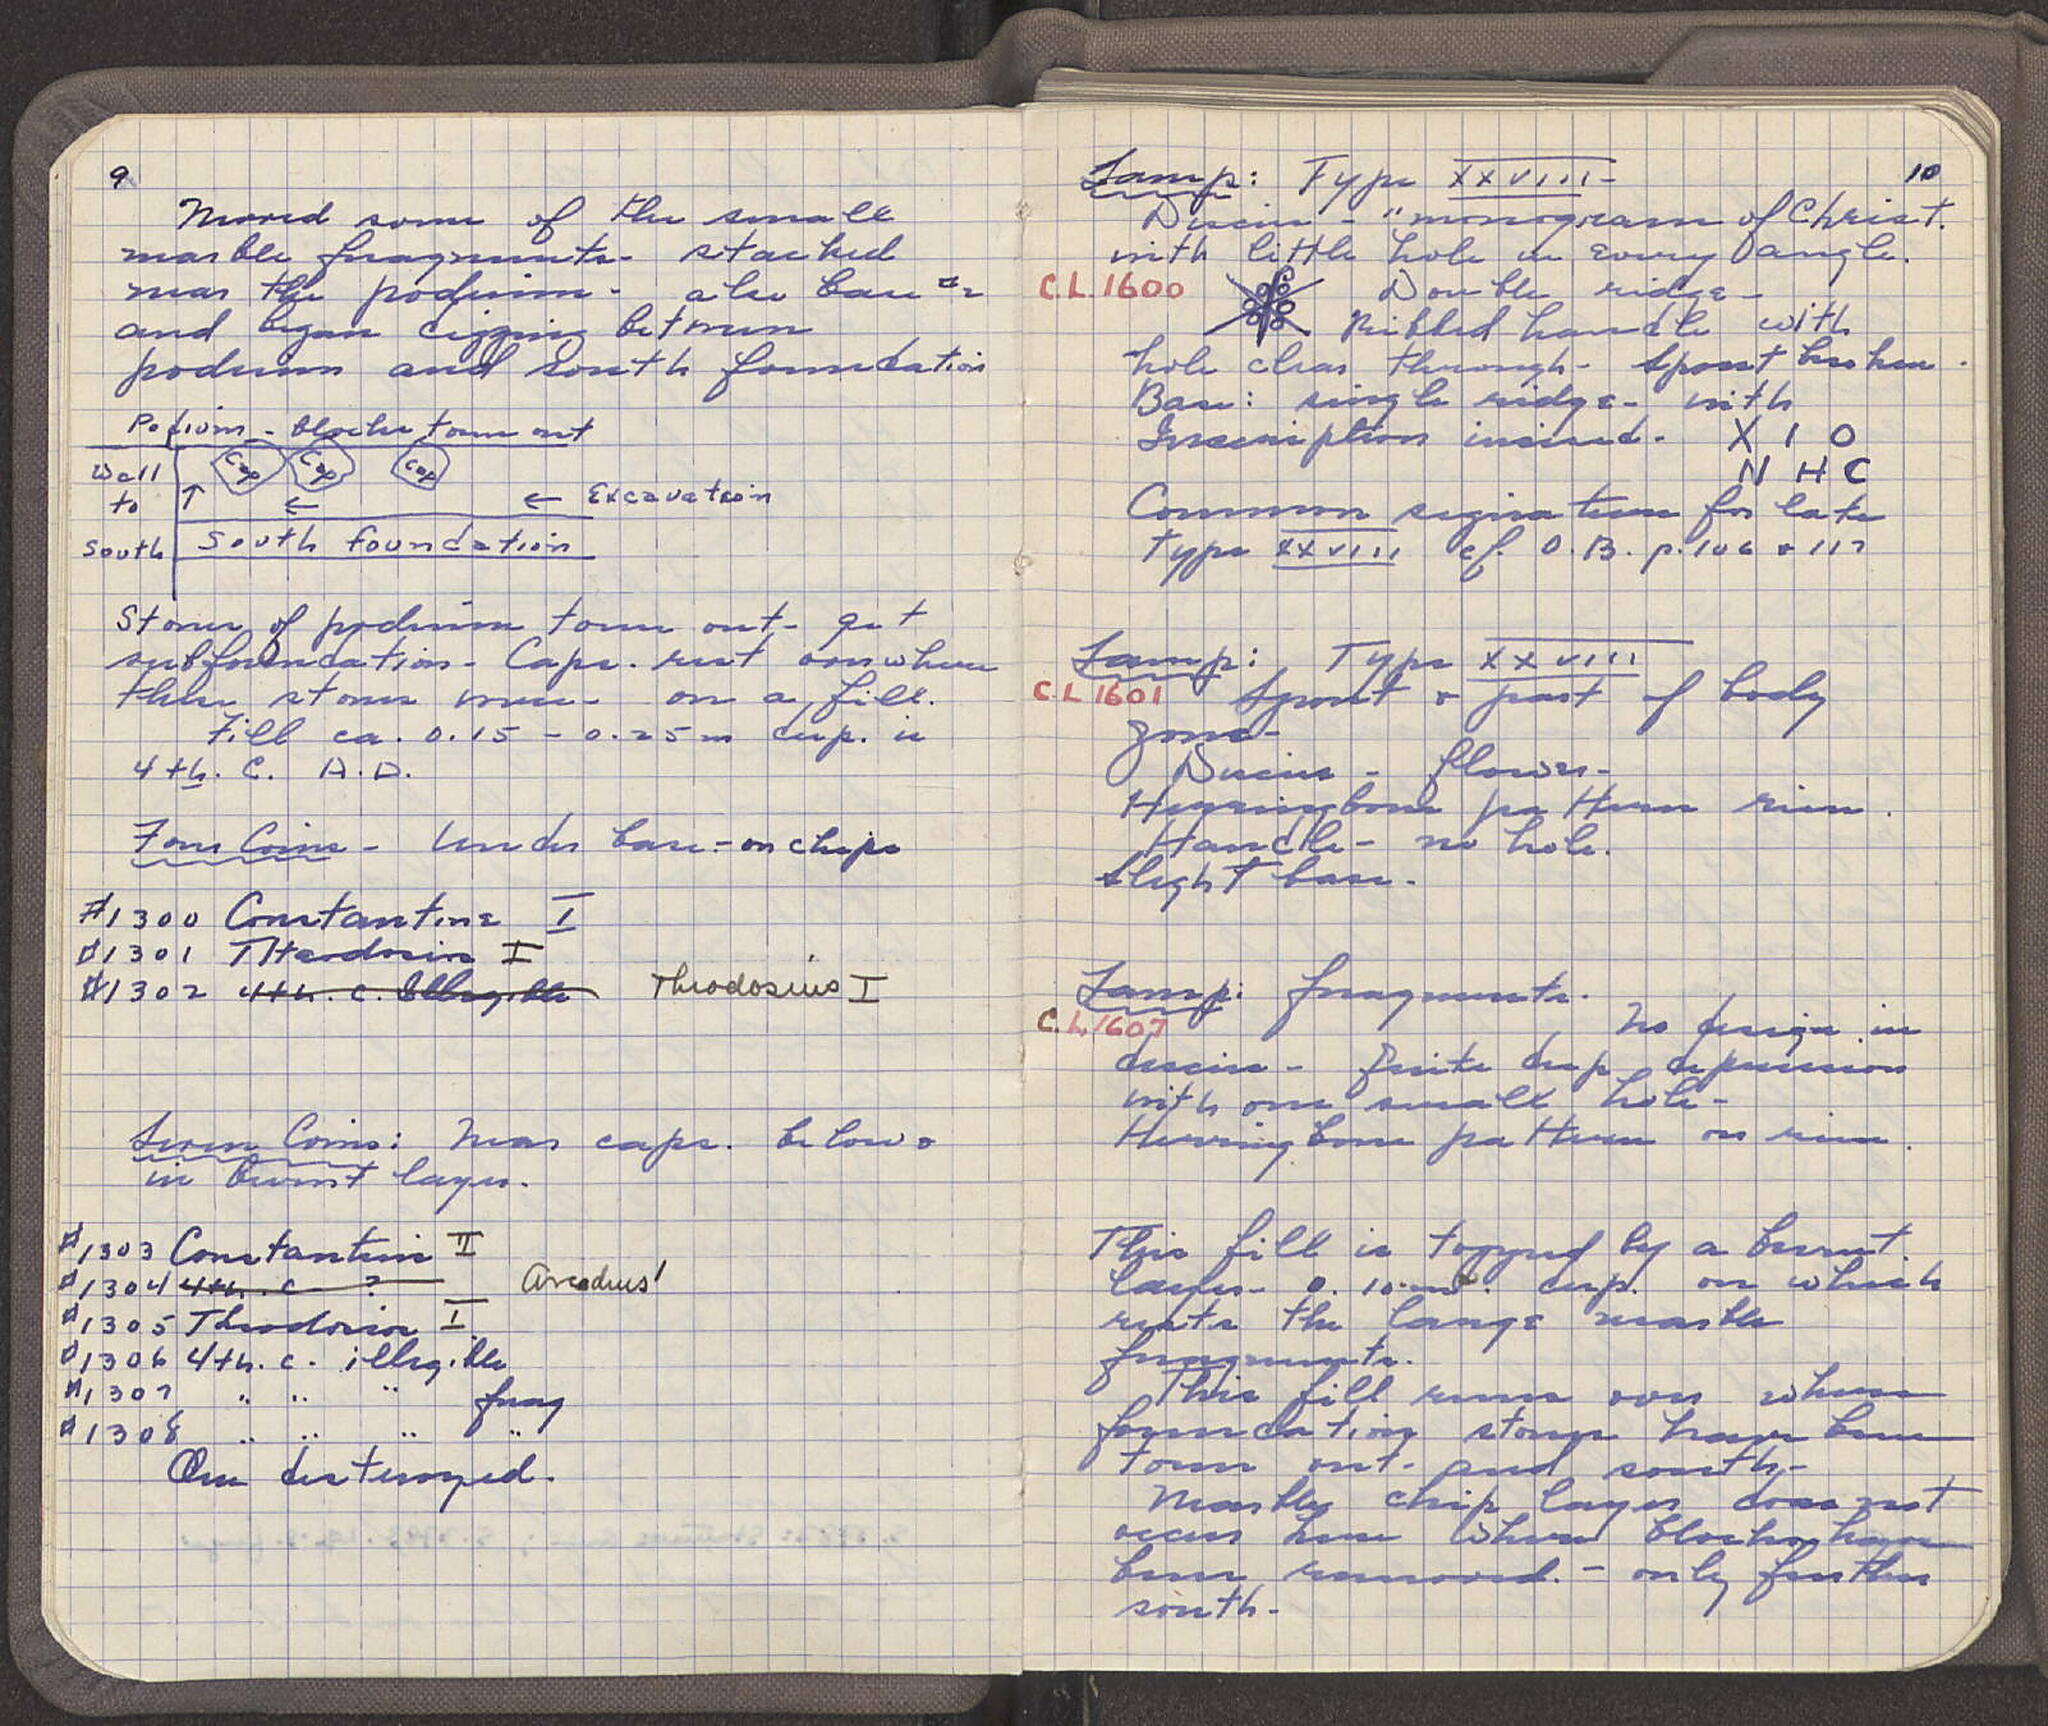 9
Moved some of the small
marble fragments - stacked
near the podium - also base #2
and began digging between
podium and south foundation
Podium - blocks torn out
Wall to South
Cap Cap Cap
← ← Excavation
South foundation
Stones of podium torn out - get
subfoundation - Caps. rest on where
these stones were - on a fill.
Fill ca. 0.15 - 0.25 m deep. is
4th. C. A.D.
Four Coins - Under base - on chips
#1300 Constantine I
#1301 Theodosius I
#1302 4th. c. Illegible Theodosius I
Seven Coins: Near caps. below
in burnt layer.
#1303 Constantius II
#1304 4th. c ? Arcadius
#1305 Theodosius I
#1306 4th. c. illegible
#1307 " " " frag
#1308 " " " "
One destroyed.
10
Lamp: Type XXVIII -
Discus - "monogram of Christ.
with little hole in every angle.
C.L. 1600 Double ridge -
Ribbed handle with
hole clear through - spout broken.
Base: single ridge - with
Inscription incised - X I O
N H C
Common signature for late
type XXVIII cf. O.B. p. 106 + 117
Lamp: Type XXVIII
C.L 1601 Spout + part of body
zone -
Discus - flower -
Herringbone pattern rim.
Handle - no hole.
Slight base.
Lamp: fragments.
C.L. 1607 No design in
discus - Quite deep depression
with one small hole -
Herringbone pattern on rim.
This fill is topped by a burnt
layer - 0.10 m. deep. on which
rests the large marble
fragments.
This fill runs over where
foundation stones have been
torn out - and south -
Marble chip layer does not
occur here where blocks have
been removed - only further
south -